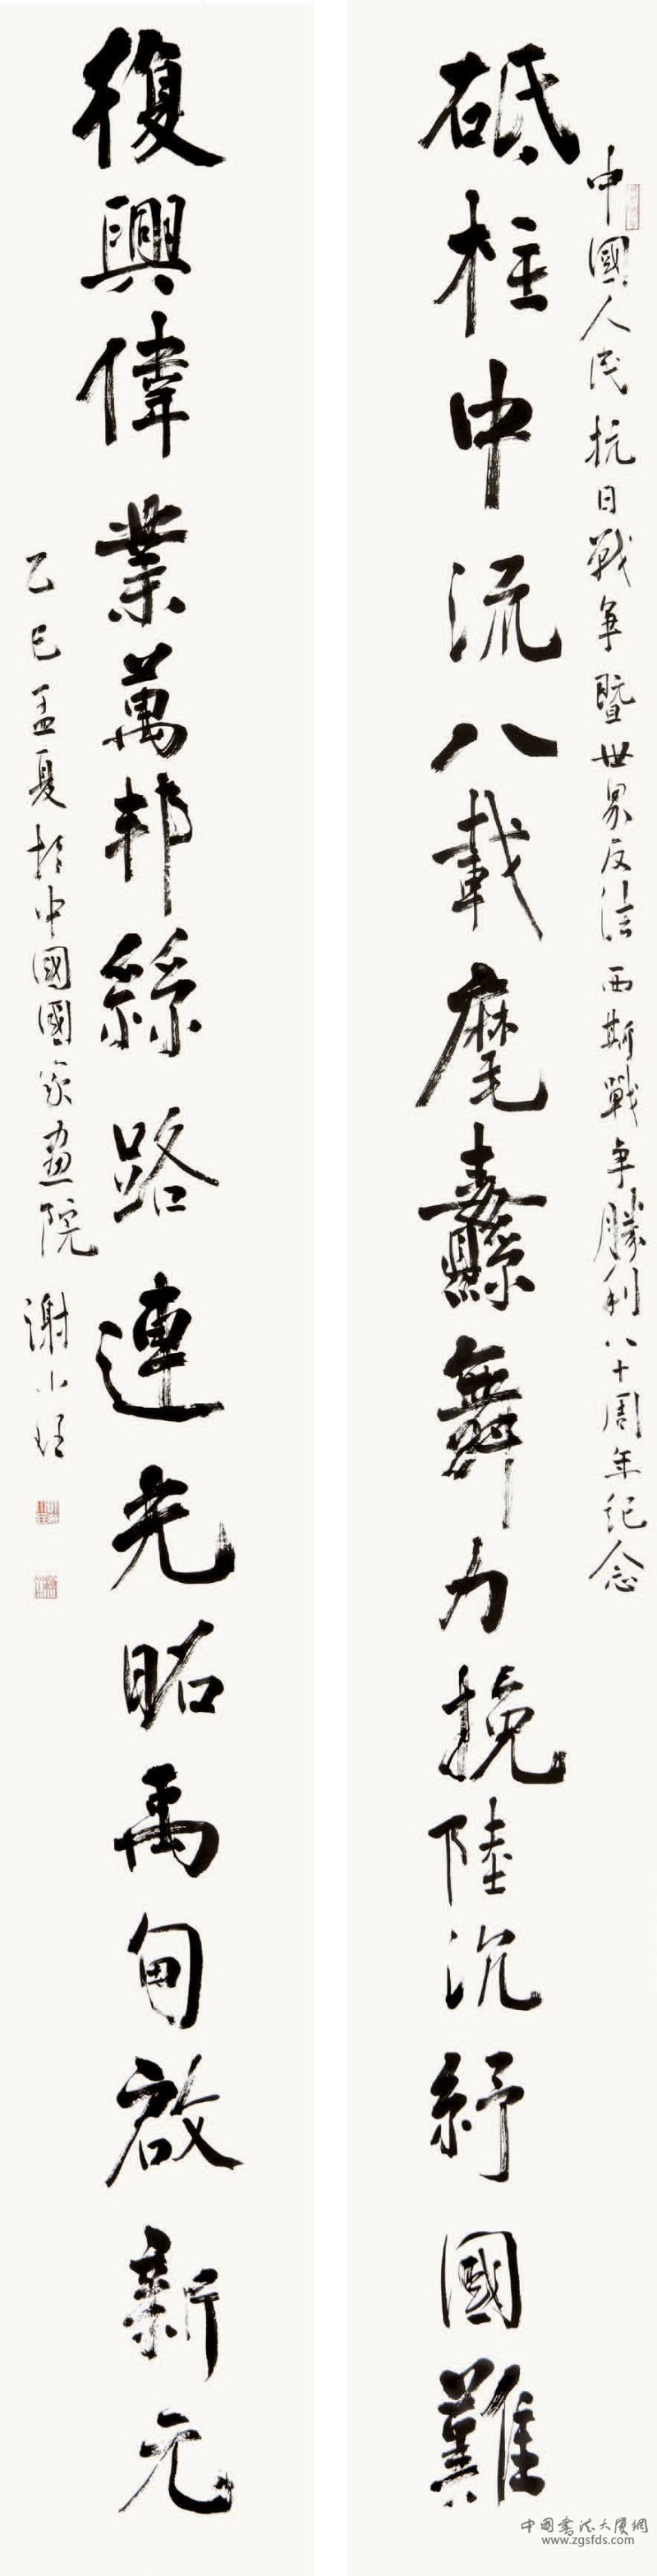 中國人民抗日戰爭暨世界反法西斯戰爭勝利八十周年紀念
砥柱中流八載麾纛舞力挽陸沉紓國難
復興偉業萬邦絲路連光昭禹甸啟新元
乙巳孟夏於中國國家畫院
謝小
中國書法大厦網
www.zgsfds.com